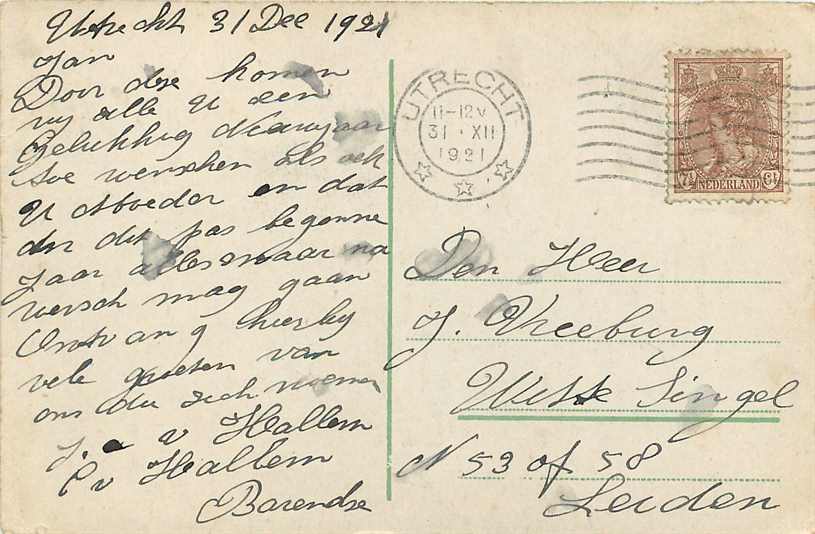 Utrecht 31 Dec 1921
Jan
Door dese komen
wij alle U een
Gelukkig Nieuwjaar
toe wenschen als ook
U Moeder en dat
dir dit pas begonne
Jaar alles maar na
wersch mag gaan
Ontvang hierbij
vele groeten van
ons die zich noemen
J. v Hallem
C v Hallem
Barendse
UTRECHT
11-12V
31 XII
1921
7½ NEDERLAND Ct
Den Heer
J. Vreeburg
Witte Singel
N 53 of 58
Leiden